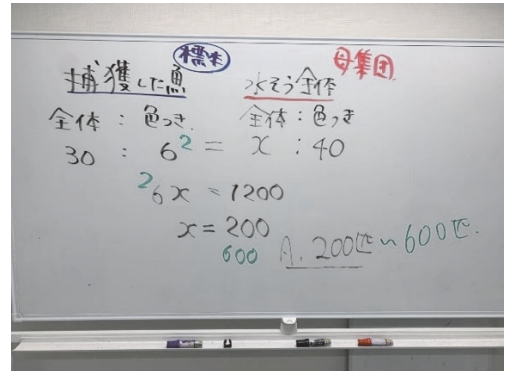 標本 母集団
捕獲した魚 水そう全体
全体：色つき 全体：色つき
30 : 6 2 = x : 40
2 6x = 1200
x = 200
600 A. 200匹〜600匹.